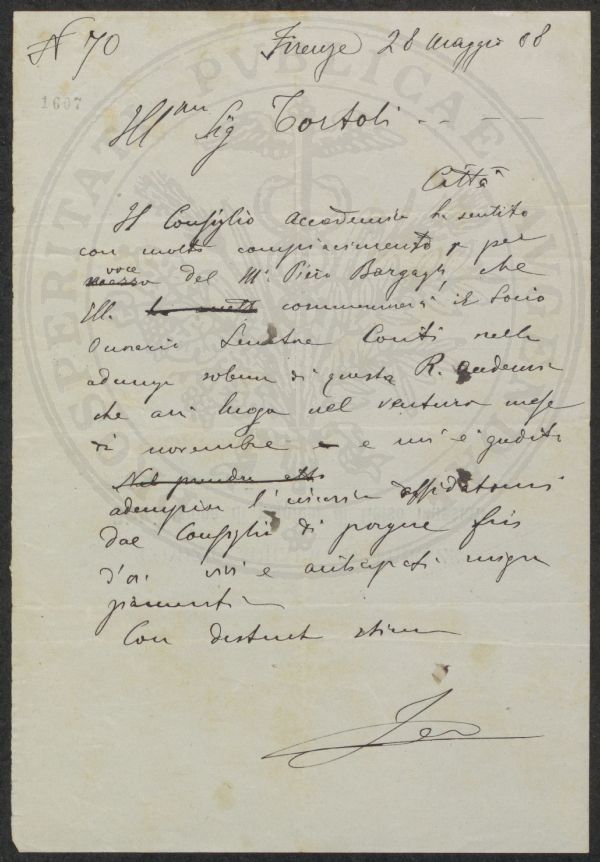 N 70
Firenze 28 Maggio 88
1607
Ill mo Sig Tortoli
Città
Il Consiglio Accademico ha sentito
con molto compiacimento, per
voce
del M. Piero Bargagli, che
Ill. commemorerà il Socio
Onorario Senatore Conti nella
adunza solenne di questa R. Accademia
che avrà luogo nel venturo mese
di novembre e mi è gradito
Nel prendere atto
adempire l'incarico affidatomi
dal Consiglio di porgere fin
d'ora vivi e anticipati ringra
ziamenti
Con distinta stima
PROSPERITATI PVBLICAE AVGENDAE